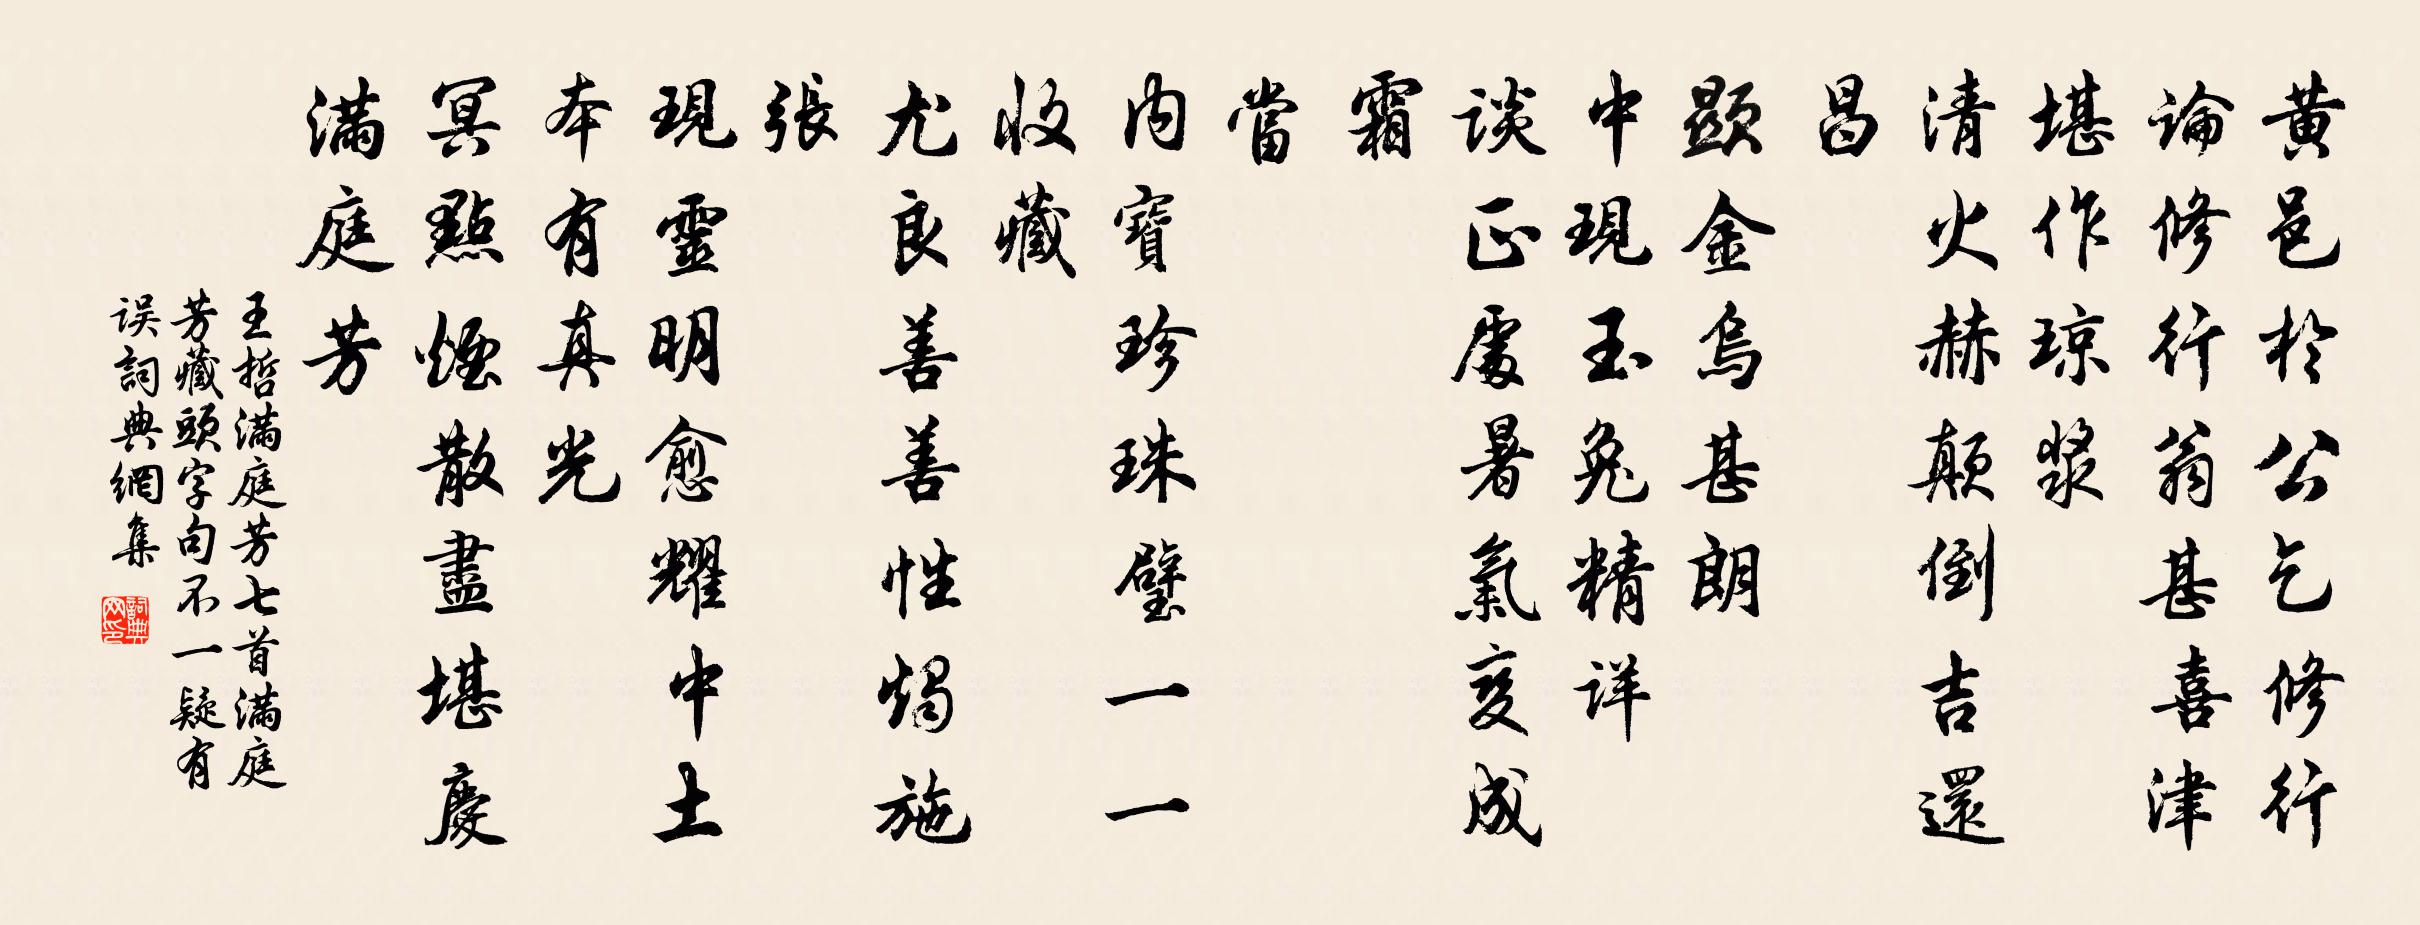 黄邑於公乞修行
論修行翁甚喜津
堪作琼漿
清火赫顛倒吉還
昌
顯金烏甚朗
中現玉兔精详
谈正處暑氣变成
霜
當
内寶珍珠璧一一
收藏
尤良善善性燭施
張
現靈明愈耀中土
本有真光
冥點煙散盡堪慶
满庭芳
王哲满庭芳七首满庭
芳藏頭字句不一疑有
误詞典網集
詞典网印